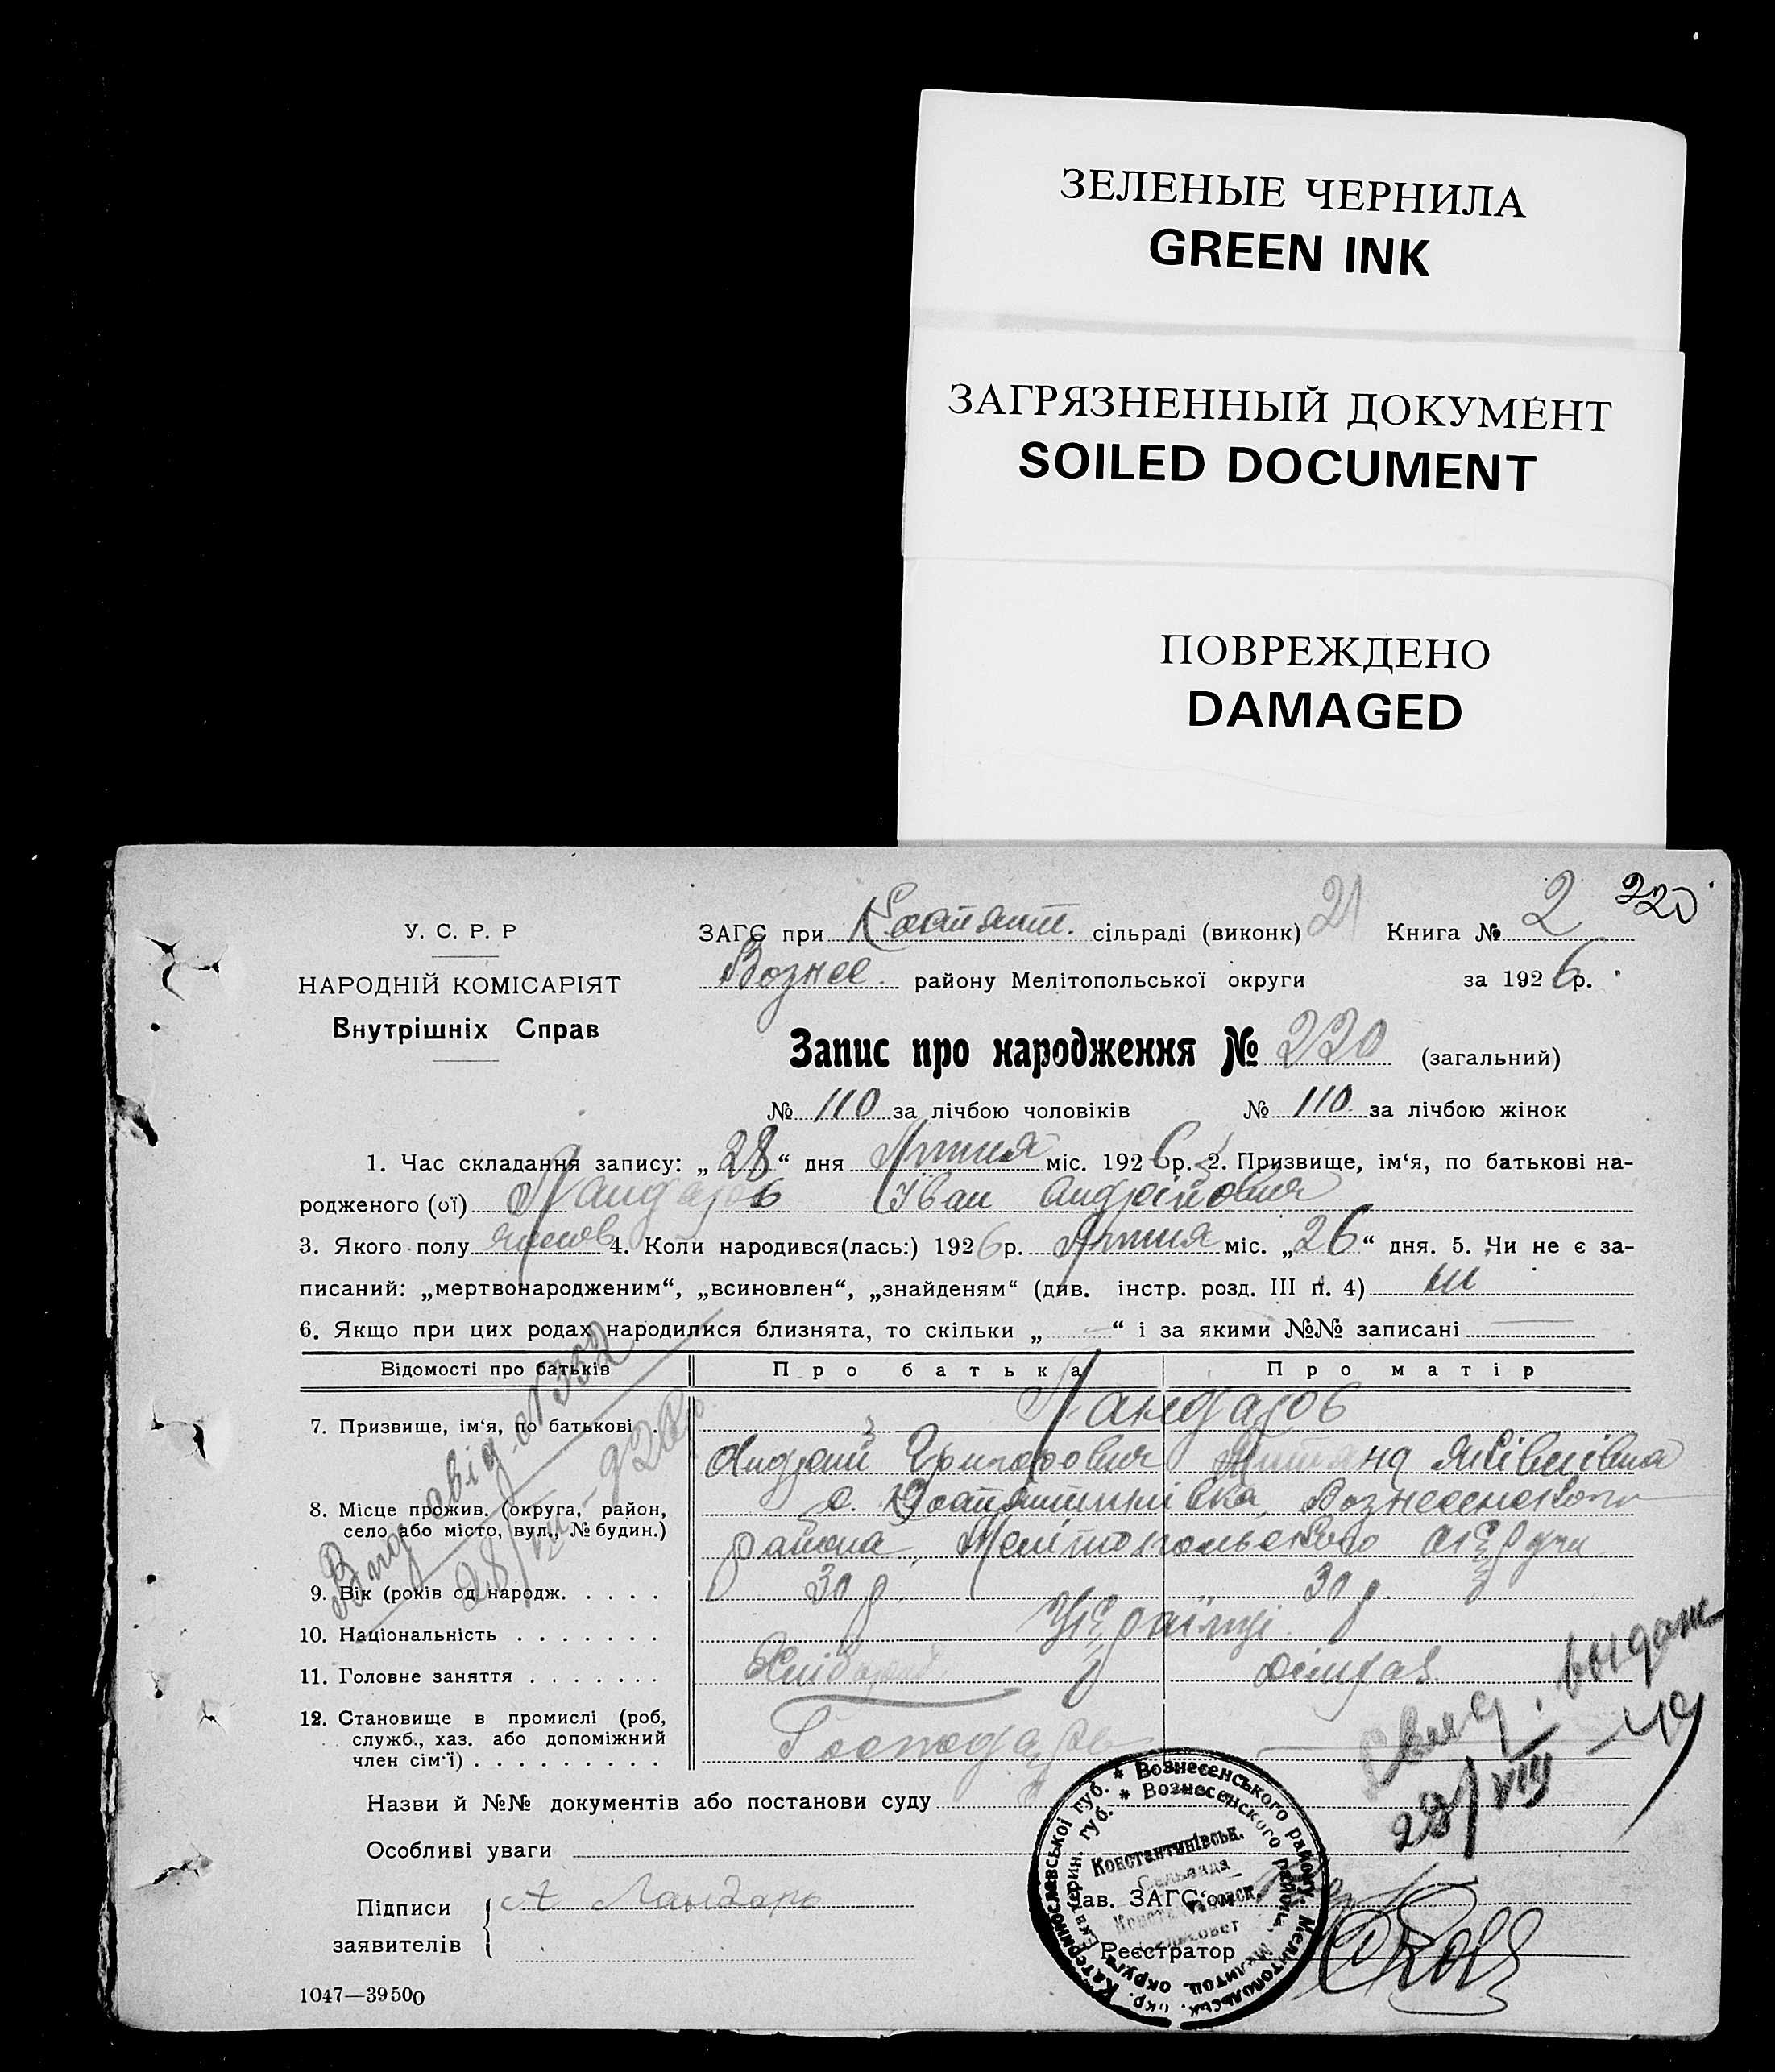 ЗЕЛЕНЫЕ ЧЕРНИЛА
GREEN INK
ЗАГРЯЗНЕННЫЙ ДОКУМЕНТ
SOILED DOCUMENT
ПОВРЕЖДЕНО
DAMAGED
220
У. С. Р. Р
НАРОДНІЙ КОМІСАРІЯТ
Внутрішніх Справ
ЗАГС при Костянт. сільраді (виконк) 21 Книга № 2
Вознес. району Мелітопольської округи за 1926 р.
Запис про народження № 220 (загальний)
№ 110 за лічбою чоловіків № 110 за лічбою жінок
1. Час складання запису: „28“ дня Липня міс. 1926 р. 2. Призвище, ім‘я, по батькові на-
родженого (ої) Іван Андрійович
3. Якого полу 4. Коли народився(лась:) 1926 р. Липня міс. „26“ дня. 5. Чи не є за-
писаний: „мертвонародженим“, „всиновлен“, „знайденям“ (див. інстр. розд. III п. 4) ні
6. Якщо при цих родах народилися близнята, то скільки „—“ і за якими №№ записані —
Відомості про батьків Про батька Про матір
7. Призвище, ім‘я, по батькові .
Андрій Григорович
8. Місце прожив. (округа, район,
село або місто, вул., № будин.)
с. Костянтинівка, Вознесенського
района, Мелітопольского округи
9. Вік (років од народж. . . . . 30 р. 30 р.
10. Національність . . . . . . . Українці
11. Головне заняття . . . . . . . Хлібороб
12. Становище в промислі (роб,
служб., хаз. або допоміжний
член сім‘ї) . . . . . . . . . Господарь —
Видан свід. № 352
28/VII-926р.
выдан
28/VIII-49
Назви й №№ документів або постанови суду
Особливі уваги
Підписи
заявителів
А Ландарь
Зав. ЗАГС‘ом
Реєстратор
Катеринославської губ. * Вознесенського району, Мелитопольськ. окр.
Екатерин. губ. * Вознесенского района, Мелитоп. округа
Константинівськ.
Сельрада
1047—39500